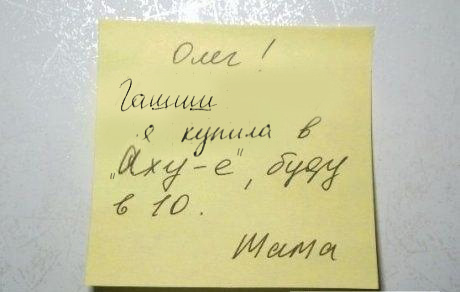 Олег!
Гашиш
я купила в
"Аху-е", буду
в 10.
Мама